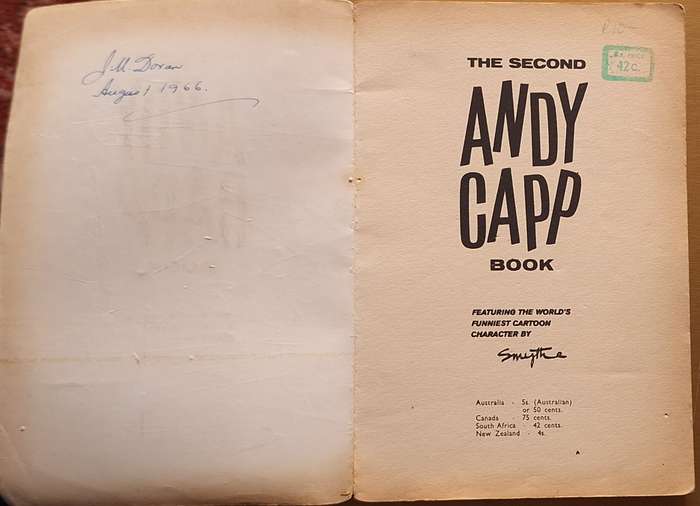 J.M. Doran
August 1966.
R10-
S.A. PRICE
42c.
THE SECOND
ANDY
CAPP
BOOK
FEATURING THE WORLD'S
FUNNIEST CARTOON
CHARACTER BY
Smythe
Australia - 5s. (Australian)
or 50 cents.
Canada - 75 cents.
South Africa - 42 cents.
New Zealand - 4s.
A